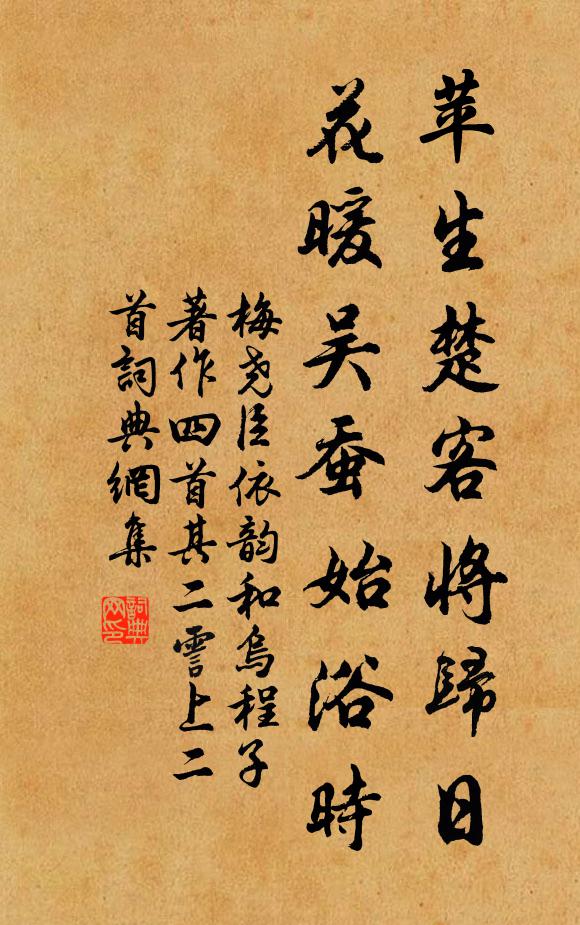 苹生楚客将歸日
花暖吴蚕始浴時
梅尧臣依韵和烏程子
著作四首其二雪上二
首詞典網集
詞典网印